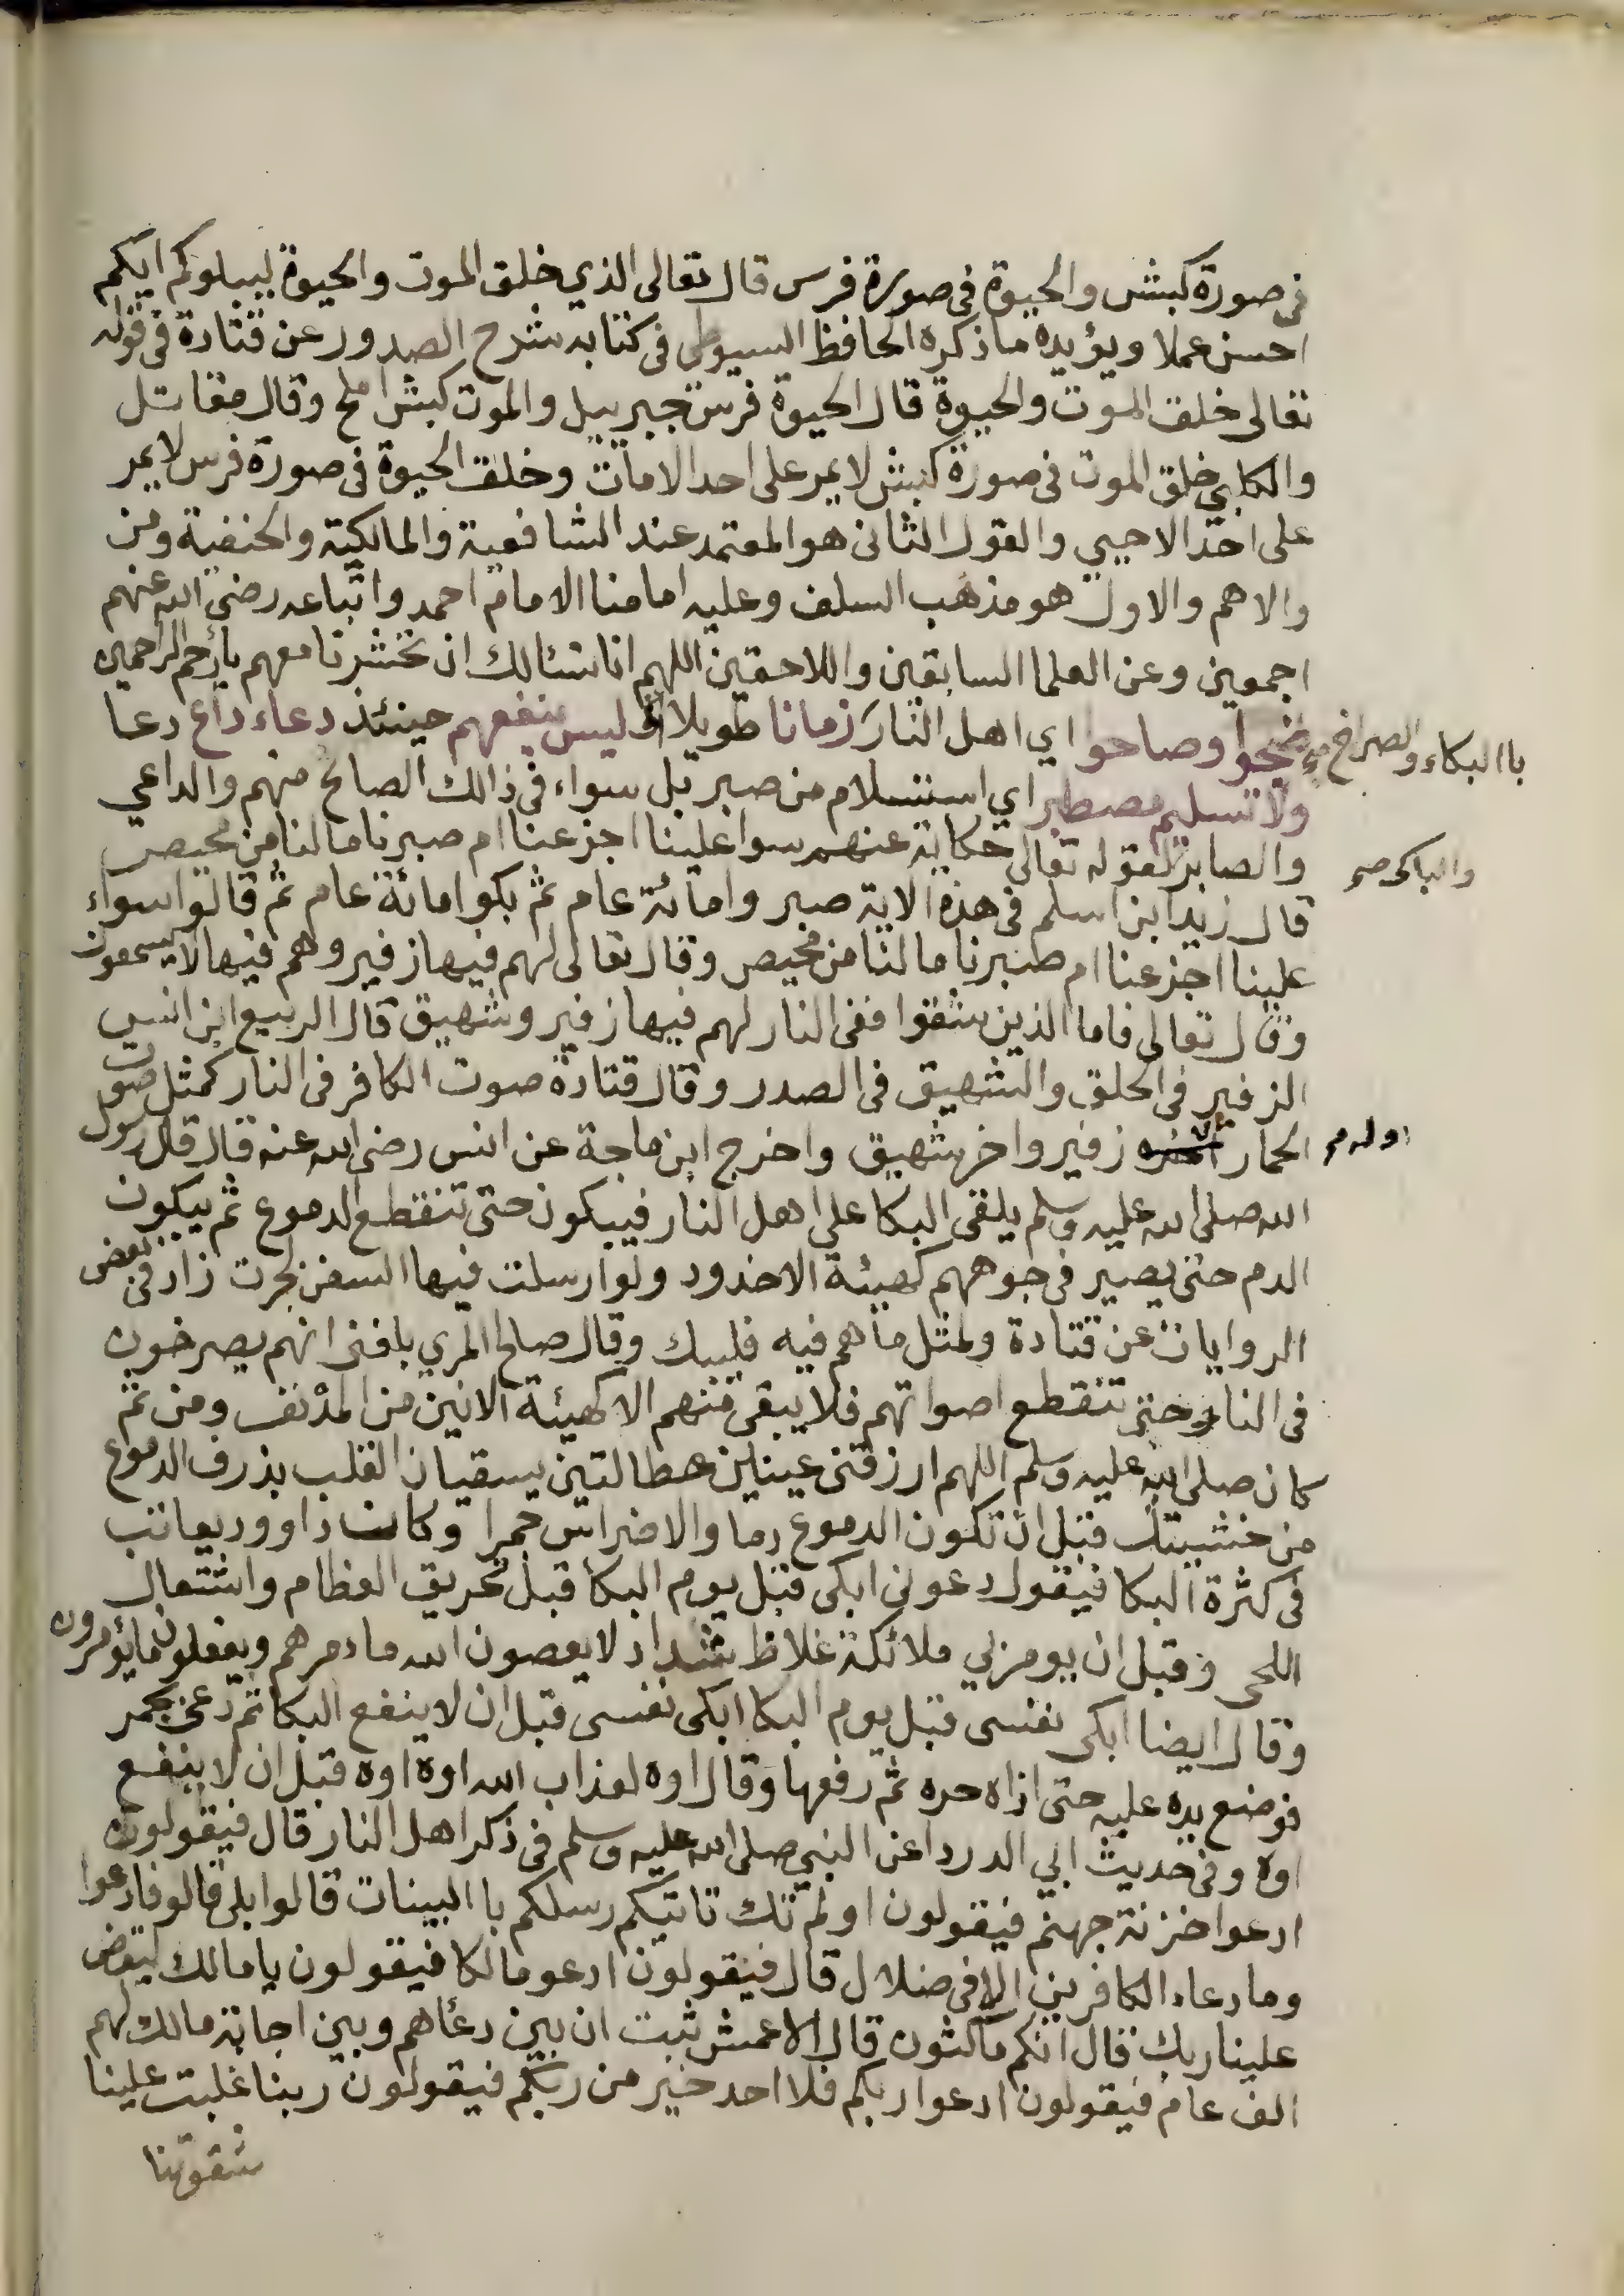 في صورة كبش والحيوة في صورة فرس قال تعالى الذي خلق الموت والحيوة ليبلوكم ايكم
احسن عملا ويؤيده ما ذكره الحافظ السيوطي في كتابه شرح الصدور عن قتادة في قوله
تعالى خلق الموت والحيوة قال الحيوة فرس جبرييل والموت كبش املح وقال مقاتل
والكلبي خلق الموت في صورة كبش لا يمر على احد الا مات وخلق الحيوة في صورة فرس لا يمر
على احد الا حيي والقول الثاني هو المعتمد عند الشافعية والمالكية والحنفية ومن
والاهم والاول هو مذهب السلف وعليه امامنا الامام احمد واتباعه رضي الله عنهم
اجمعين وعن العلما السابقين واللاحقين اللهم انا نسئالك ان تحشرنا معهم يا ارحم الراحمين
ضجوا وصاحوا اي اهل النار زمانا طويلا ليس ينفعهم حينئذ دعاء داع دعا
با البكاء والصراخ صح
ولا تسليم مصطبر اي استسلام من صبر بل سواء في ذالك الصالح منهم والداعي
والصابر لقوله تعالى حكاية عنهم سوا علينا اجزعنا ام صبرنا مالنا من محيص
والباكي صح
قال زيد ابن اسلم في هذه الاية صبر وا مائة عام ثم بكوا مائة عام ثم قالوا سواء
علينا اجزعنا ام صبرنا مالنا من محيص وقال تعالى لهم فيها زفير وهم فيها لا يسمعون
وقال تعالى فاما الذين شقوا ففي النار لهم فيها زفير وشهيق قال الربيع ابن انس
الزفير في الحلق والشهيق في الصدر وقال قتادة صوت الكافر في النار كمثل صوت
الحمار زفير واخر شهيق واخرج ابن ماجة عن انس رضي الله عنه قال قال رسول
اوله صح
الله صلى الله عليه وسلم يلقى البكا على اهل النار فيبكون حتى تنقطع الدموع ثم يبكون
الدم حتى يصير في جوههم كهيئة الاخدود ولو ارسلت فيها السفن لجرت زاد في بعض
الروايات عن قتادة ولمثل ما هم فيه فليبك وقال صالح المري بلغني انهم يصرخون
في النار حتى تنقطع اصواتهم فلا يبقى منهم الا كهيئة الانين من المدنف ومن ثم
كان صلى الله عليه وسلم اللهم ارزقني عينين هطالتين يسقيان القلب بذرف الدموع
من خشيتك قبل ان تكون الدموع دما والاضراس جمرا وكان داوود يعاتب
في كثرة البكا فيقول دعوني ابكي قبل يوم البكا قبل تحريق العظام واشتعال
اللحى وقبل ان يومر بي ملائكة غلاظ شداد لا يعصون الله ما امرهم ويفعلون ما يؤمرون
وقال ايضا ابكي نفسي قبل يوم البكا ابكي نفسي قبل ان لا ينفع البكا ثم دعى بجمر
فوضع يده عليه حتى اذاه حره ثم رفعها وقال اوه لعذاب الله اوه اوه قبل ان لا ينفع
اوه وفي حديث ابي الدردا عن النبي صلى الله عليه وسلم في ذكر اهل النار قال فيقولون
ادعوا خزنة جهنم فيقولون اولم تك تاتيكم رسلكم با البينات قالوا بلى قالو فادعوا
وما دعاء الكافرين الا في ضلال قال فيقولون ادعو مالكا فيقولون يا مالك ليقض
علينا ربك قال انكم ماكثون قال الاعمش ثبت ان بين دعاهم وبين اجابة مالك لهم
الف عام فيقولون ادعوا ربكم فلا احد خير من ربكم فيقولون ربنا غلبت علينا
شقوتنا